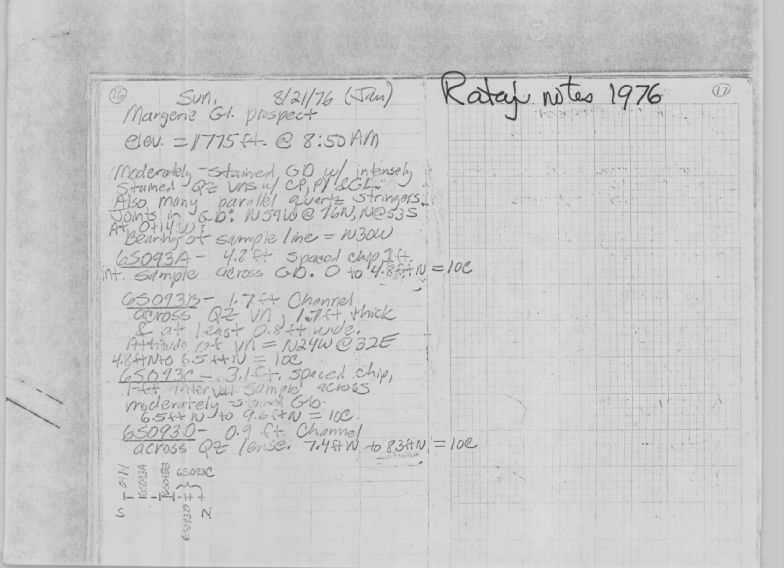 16
Sun, 8/21/76 (Jan)
Margerie Gl. prospect
elev. = 1775 ft. @ 8:50 AM
Moderately-stained GD w/ intensely
stained QZ vns w/ CP, PY & GL.
Also many parallel quartz stringers.
Joints in GD: N59W @ 76N, N@53S
At 0+14 W:
Bearing of sample line = N30W
6S093A - 4.8 ft spaced chip, 1 ft.
int. sample across GD. 0 to 4.8 ft N = 10C
6S093B - 1.7 ft Channel
across QZ vn, 1.7 ft thick
& at least 0.8 ft wide.
Attitude of vn = N24W @ 32E
4.8 ft N to 6.5 ft N = 10C
6S093C - 3.1 ft. spaced chip,
1-ft interval sample across
moderately-stained GD.
6.5 ft N to 9.6 ft N = 10C
6S093D - 0.9 ft. Channel
across QZ lense. 7.4 ft N to 8.3 ft N = 10C
0+14 6S093A 6S093B 6S093C
S 6S093D N
Rataj notes 1976
17